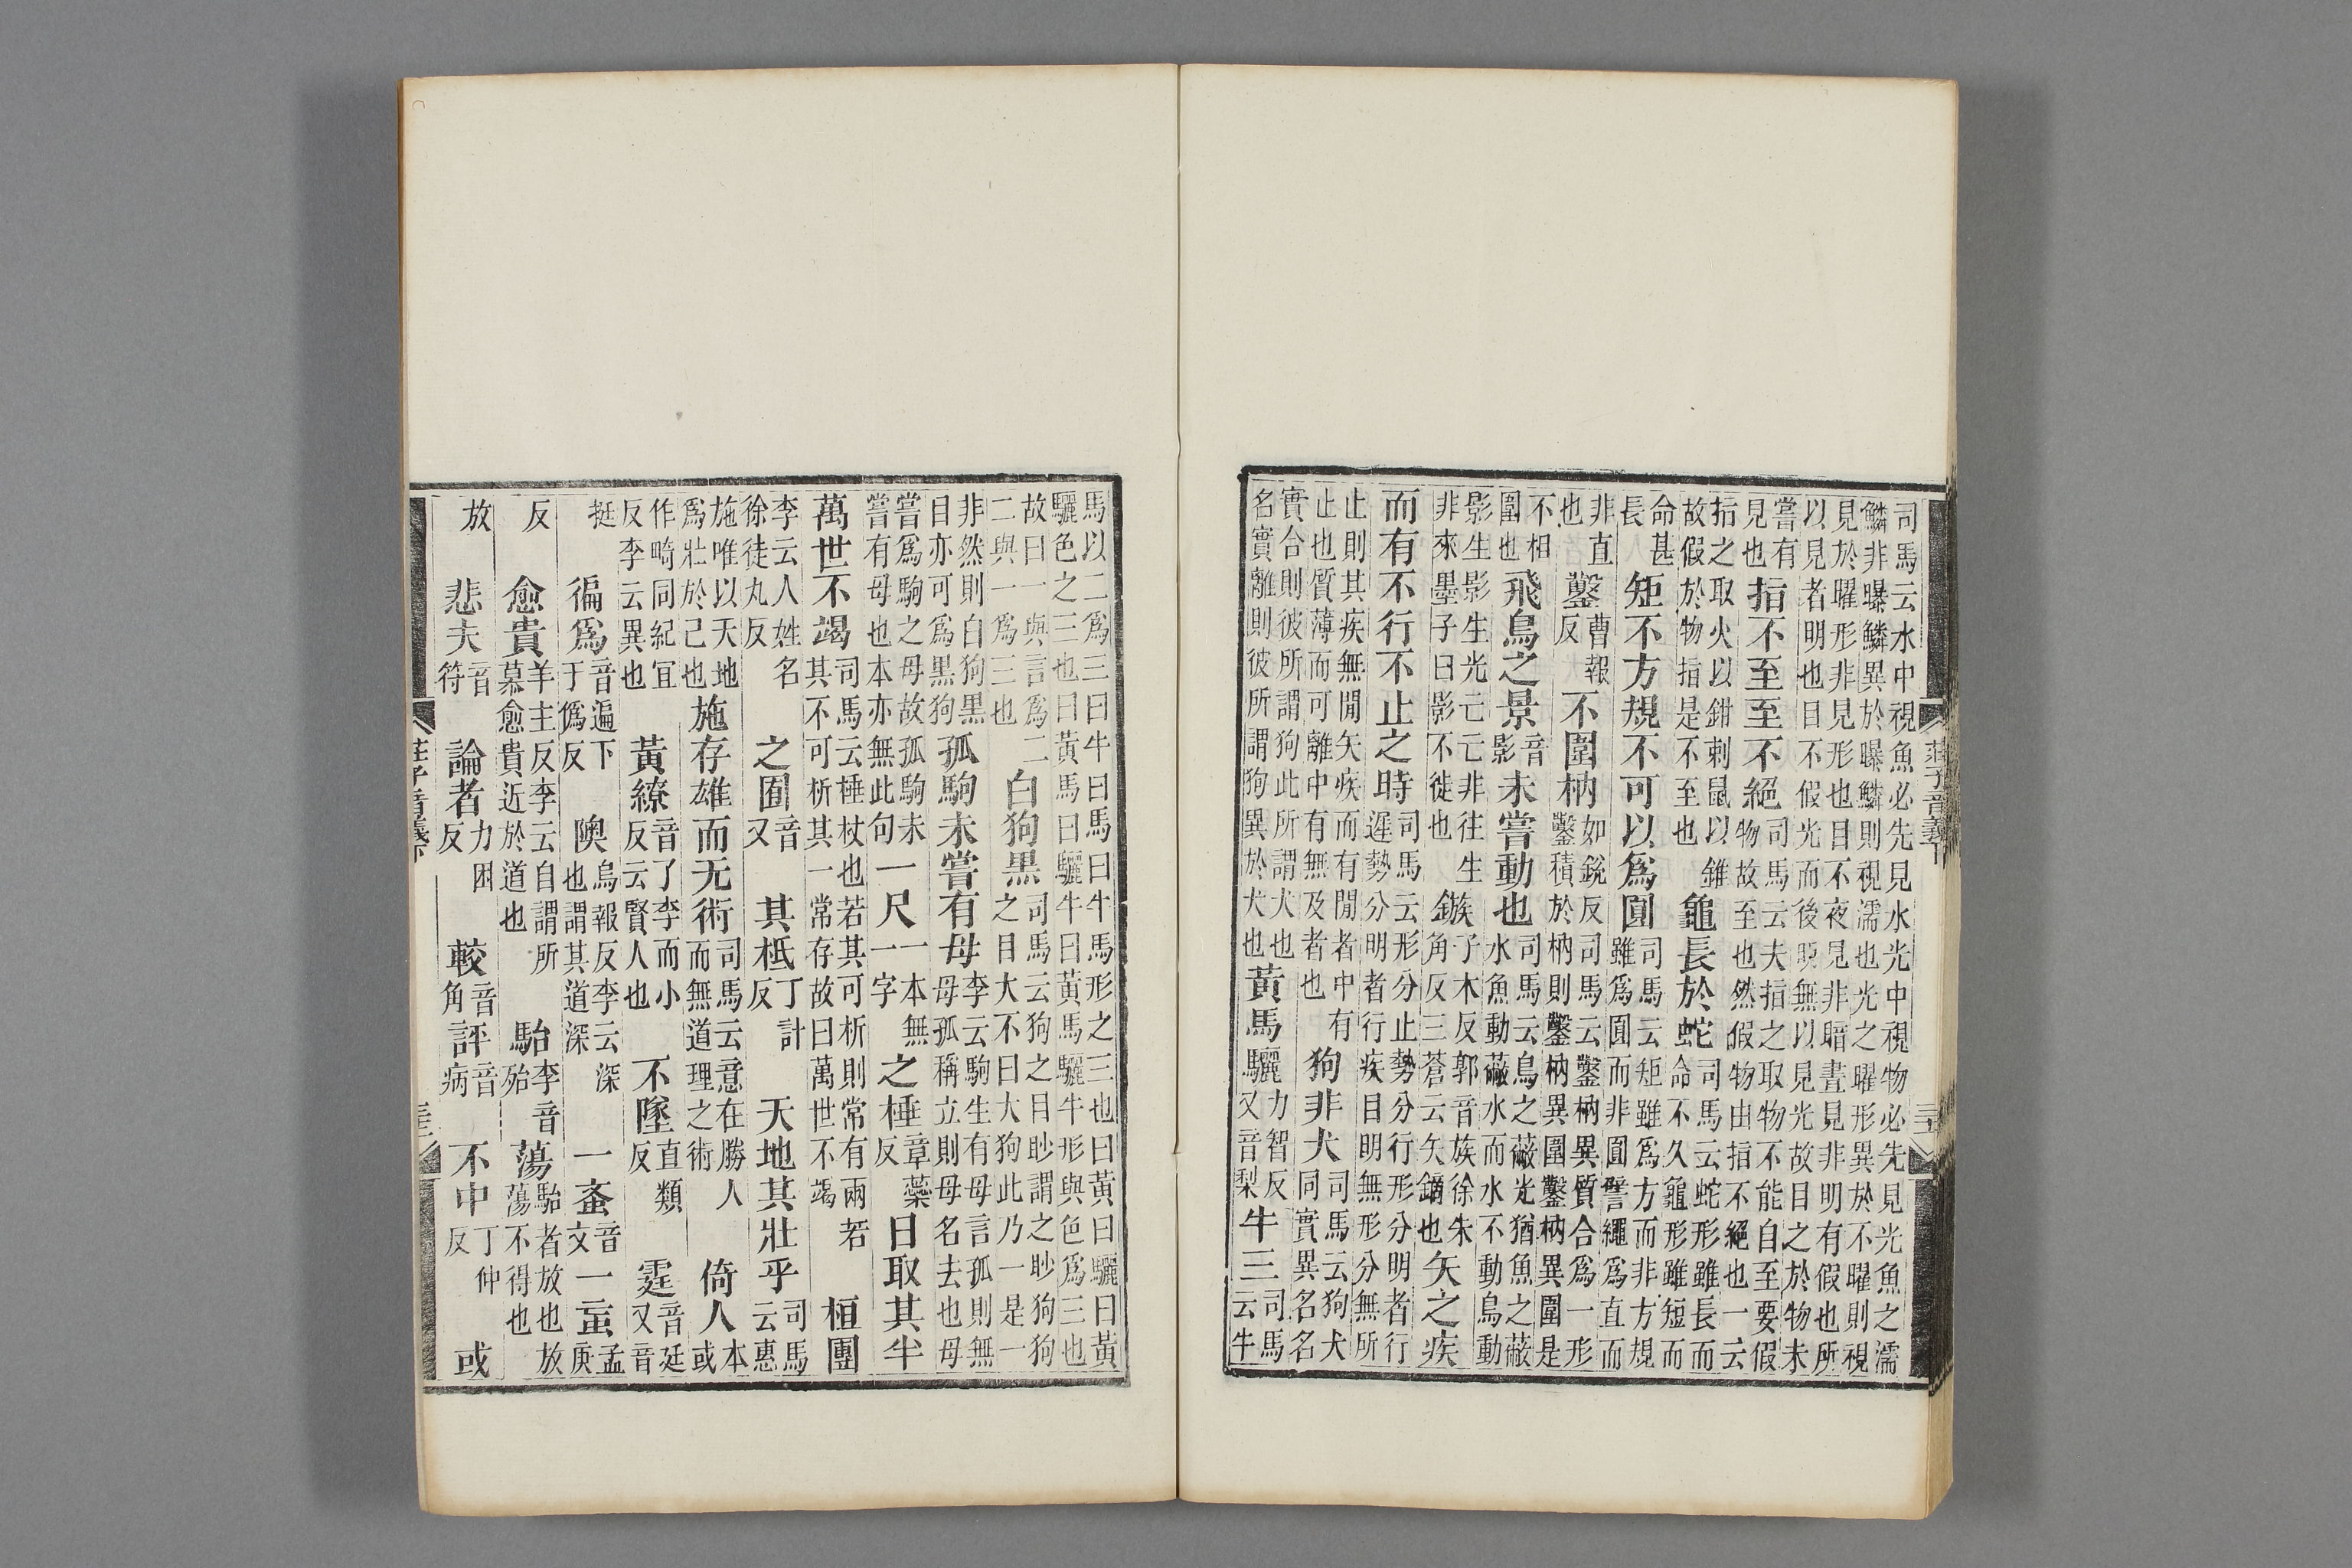 司馬云水中視魚必先見水光中視物必先見光魚之濡鱗非曝鱗異於曝鱗則視濡也光之曜形異於不曜則視
見於曜形非見形也目不夜見非暗晝見非明有假也所以見者明也目不假光而後明無以見光故目之於物未
嘗有見也指不至至不絕司馬云夫指之取物不能自至要假物故至也然假物由指不絕也一云
指之取火以鉗刺鼠以錐故假於物指是不至也龜長於蛇司馬云蛇形雖長而命不久龜形雖短而
命甚長矩不方規不可以爲圓司馬云矩雖爲方而非方規雖爲圓而非圓譬繩爲直而
非直也鑿曹報反不圍枘如銳反司馬云鑿枘異質合爲一形鑿積於枘則鑿枘異圍鑿枘異圍是
不相圍也飛鳥之景音影未嘗動也司馬云鳥之蔽光猶魚之蔽水魚動蔽水而水不動鳥動
影生影生光亡亡非往生非來墨子曰影不徙也鏃子木反郭音族徐朱角反三蒼云矢鏑也矢之疾
而有不行不止之時司馬云形分止勢分行形分明者行遲勢分明者行疾目明無形分無所
止則其疾無閒矢疾而有閒者中有止也質薄而可離中有無及者也狗非犬司馬云狗犬同實異名名
實合則彼所謂狗此所謂犬也名實離則彼所謂狗異於犬也黃馬驪力智反又音梨牛三司馬云牛
馬以二爲三曰牛曰馬曰牛馬形之三也曰黃曰驪曰黃驪色之三也曰黃馬曰驪牛曰黃馬驪牛形與色爲三也
故曰一與言爲二二與一爲三也白狗黑司馬云狗之目眇謂之眇狗狗之目大不曰大狗此乃一是一
非然則白狗黑目亦可爲黑狗孤駒未嘗有母李云駒生有母言孤則無母孤稱立則母名去也母
嘗爲駒之母故孤駒未嘗有母也本亦無此句一尺一本無一字之棰章蘂反日取其半
萬世不竭司馬云棰杖也若其可析則常有兩若其不可析其一常存故曰萬世不竭桓團
李云人姓名徐徒丸反之囿音又其柢丁計反天地其壯乎司馬云惠
施唯以天地爲壯於己也施存雄而无術司馬云意在勝人而無道理之術倚人本或
作畸同紀宜反李云異也黃繚音了李而小反云賢人也不墜直類反霆音廷又音
挺徧爲音遍下于僞反隩烏報反李云深也謂其道深一蚉音文一䖟孟庚
反愈貴羊主反李云自謂所慕愈貴近於道也駘李音殆蕩駘者放也放蕩不得也
放悲夫音符論者力困反較音角評音病不中丁仲反或
莊子音義下